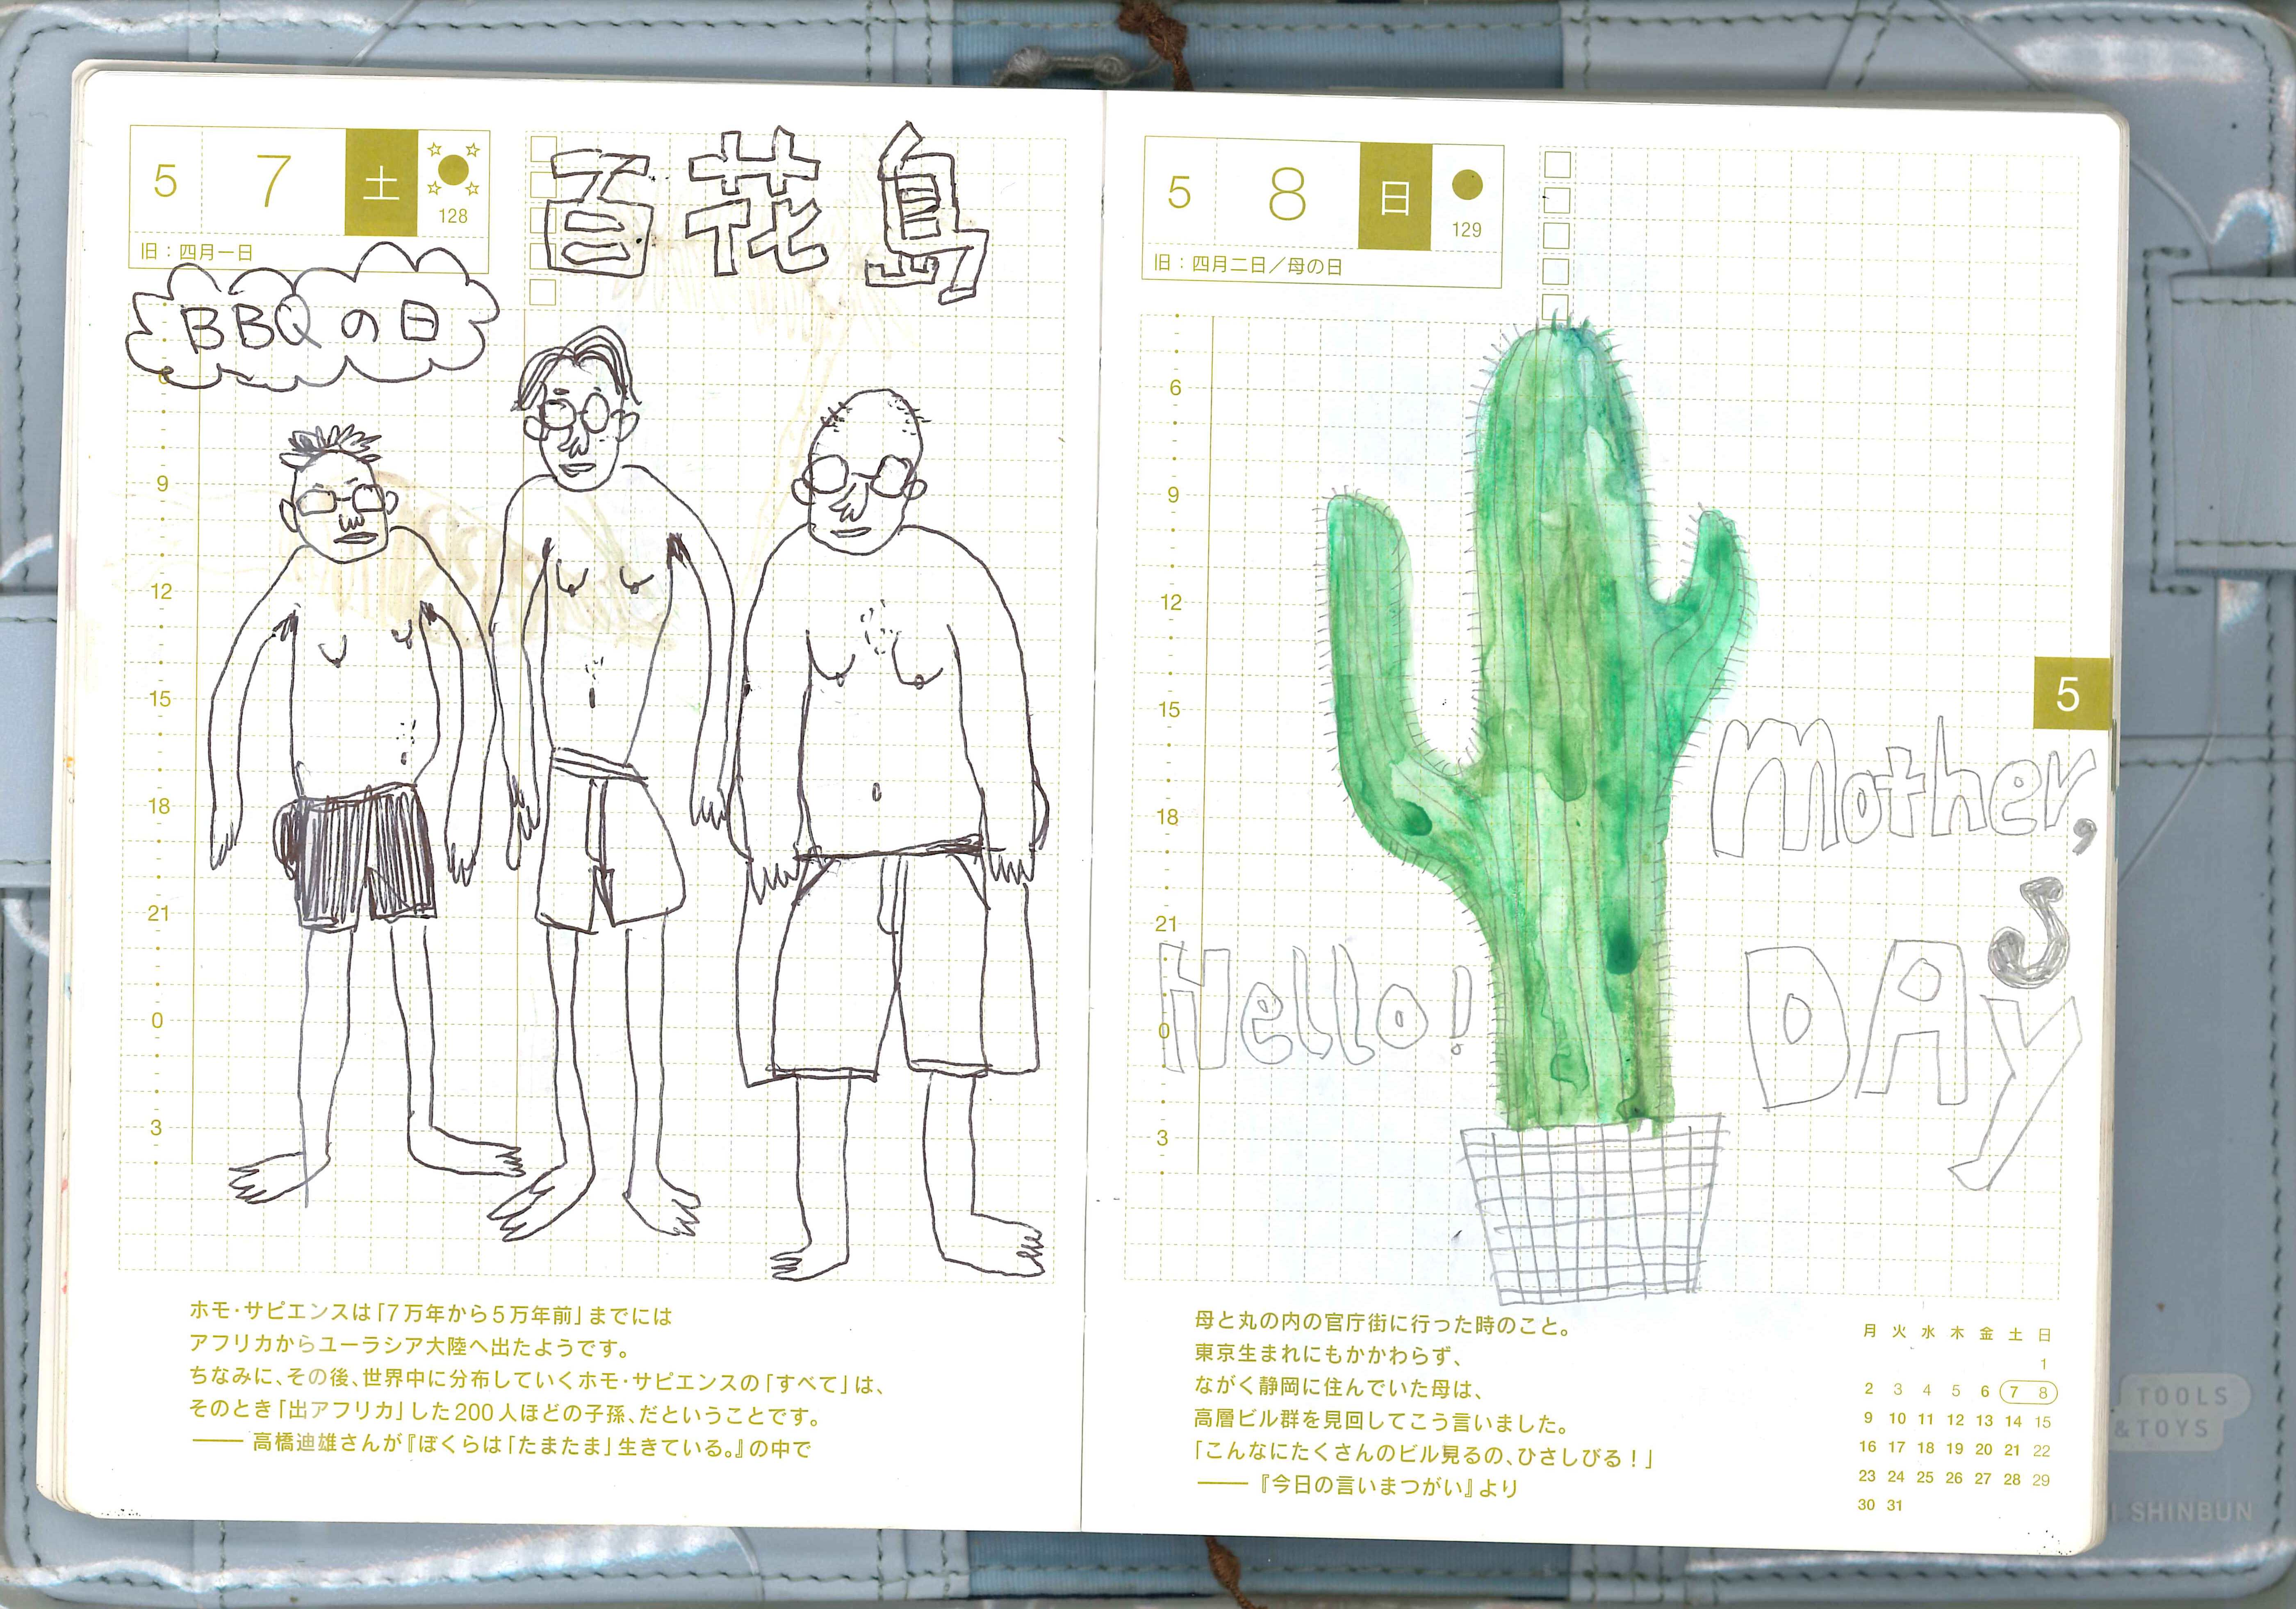 5 7 土
128
旧：四月一日
百花島
BBQの日
9
12
15
18
21
0
3
ホモ・サピエンスは「7万年から5万年前」までには
アフリカからユーラシア大陸へ出たようです。
ちなみに、その後、世界中に分布していくホモ・サピエンスの「すべて」は、
そのとき「出アフリカ」した200人ほどの子孫、だということです。
―― 高橋迪雄さんが『ぼくらは「たまたま」生きている。』の中で
5 8 日
129
旧：四月二日／母の日
6
9
12
15
18
21
0
3
5
Mother,
s
DAy
Hello!
母と丸の内の官庁街に行った時のこと。
東京生まれにもかかわらず、
ながく静岡に住んでいた母は、
高層ビル群を見回してこう言いました。
「こんなにたくさんのビル見るの、ひさしびる！」
―― 『今日の言いまつがい』より
月 火 水 木 金 土 日
1
2 3 4 5 6 7 8
9 10 11 12 13 14 15
16 17 18 19 20 21 22
23 24 25 26 27 28 29
30 31
TOOLS
&TOYS
SHINBUN